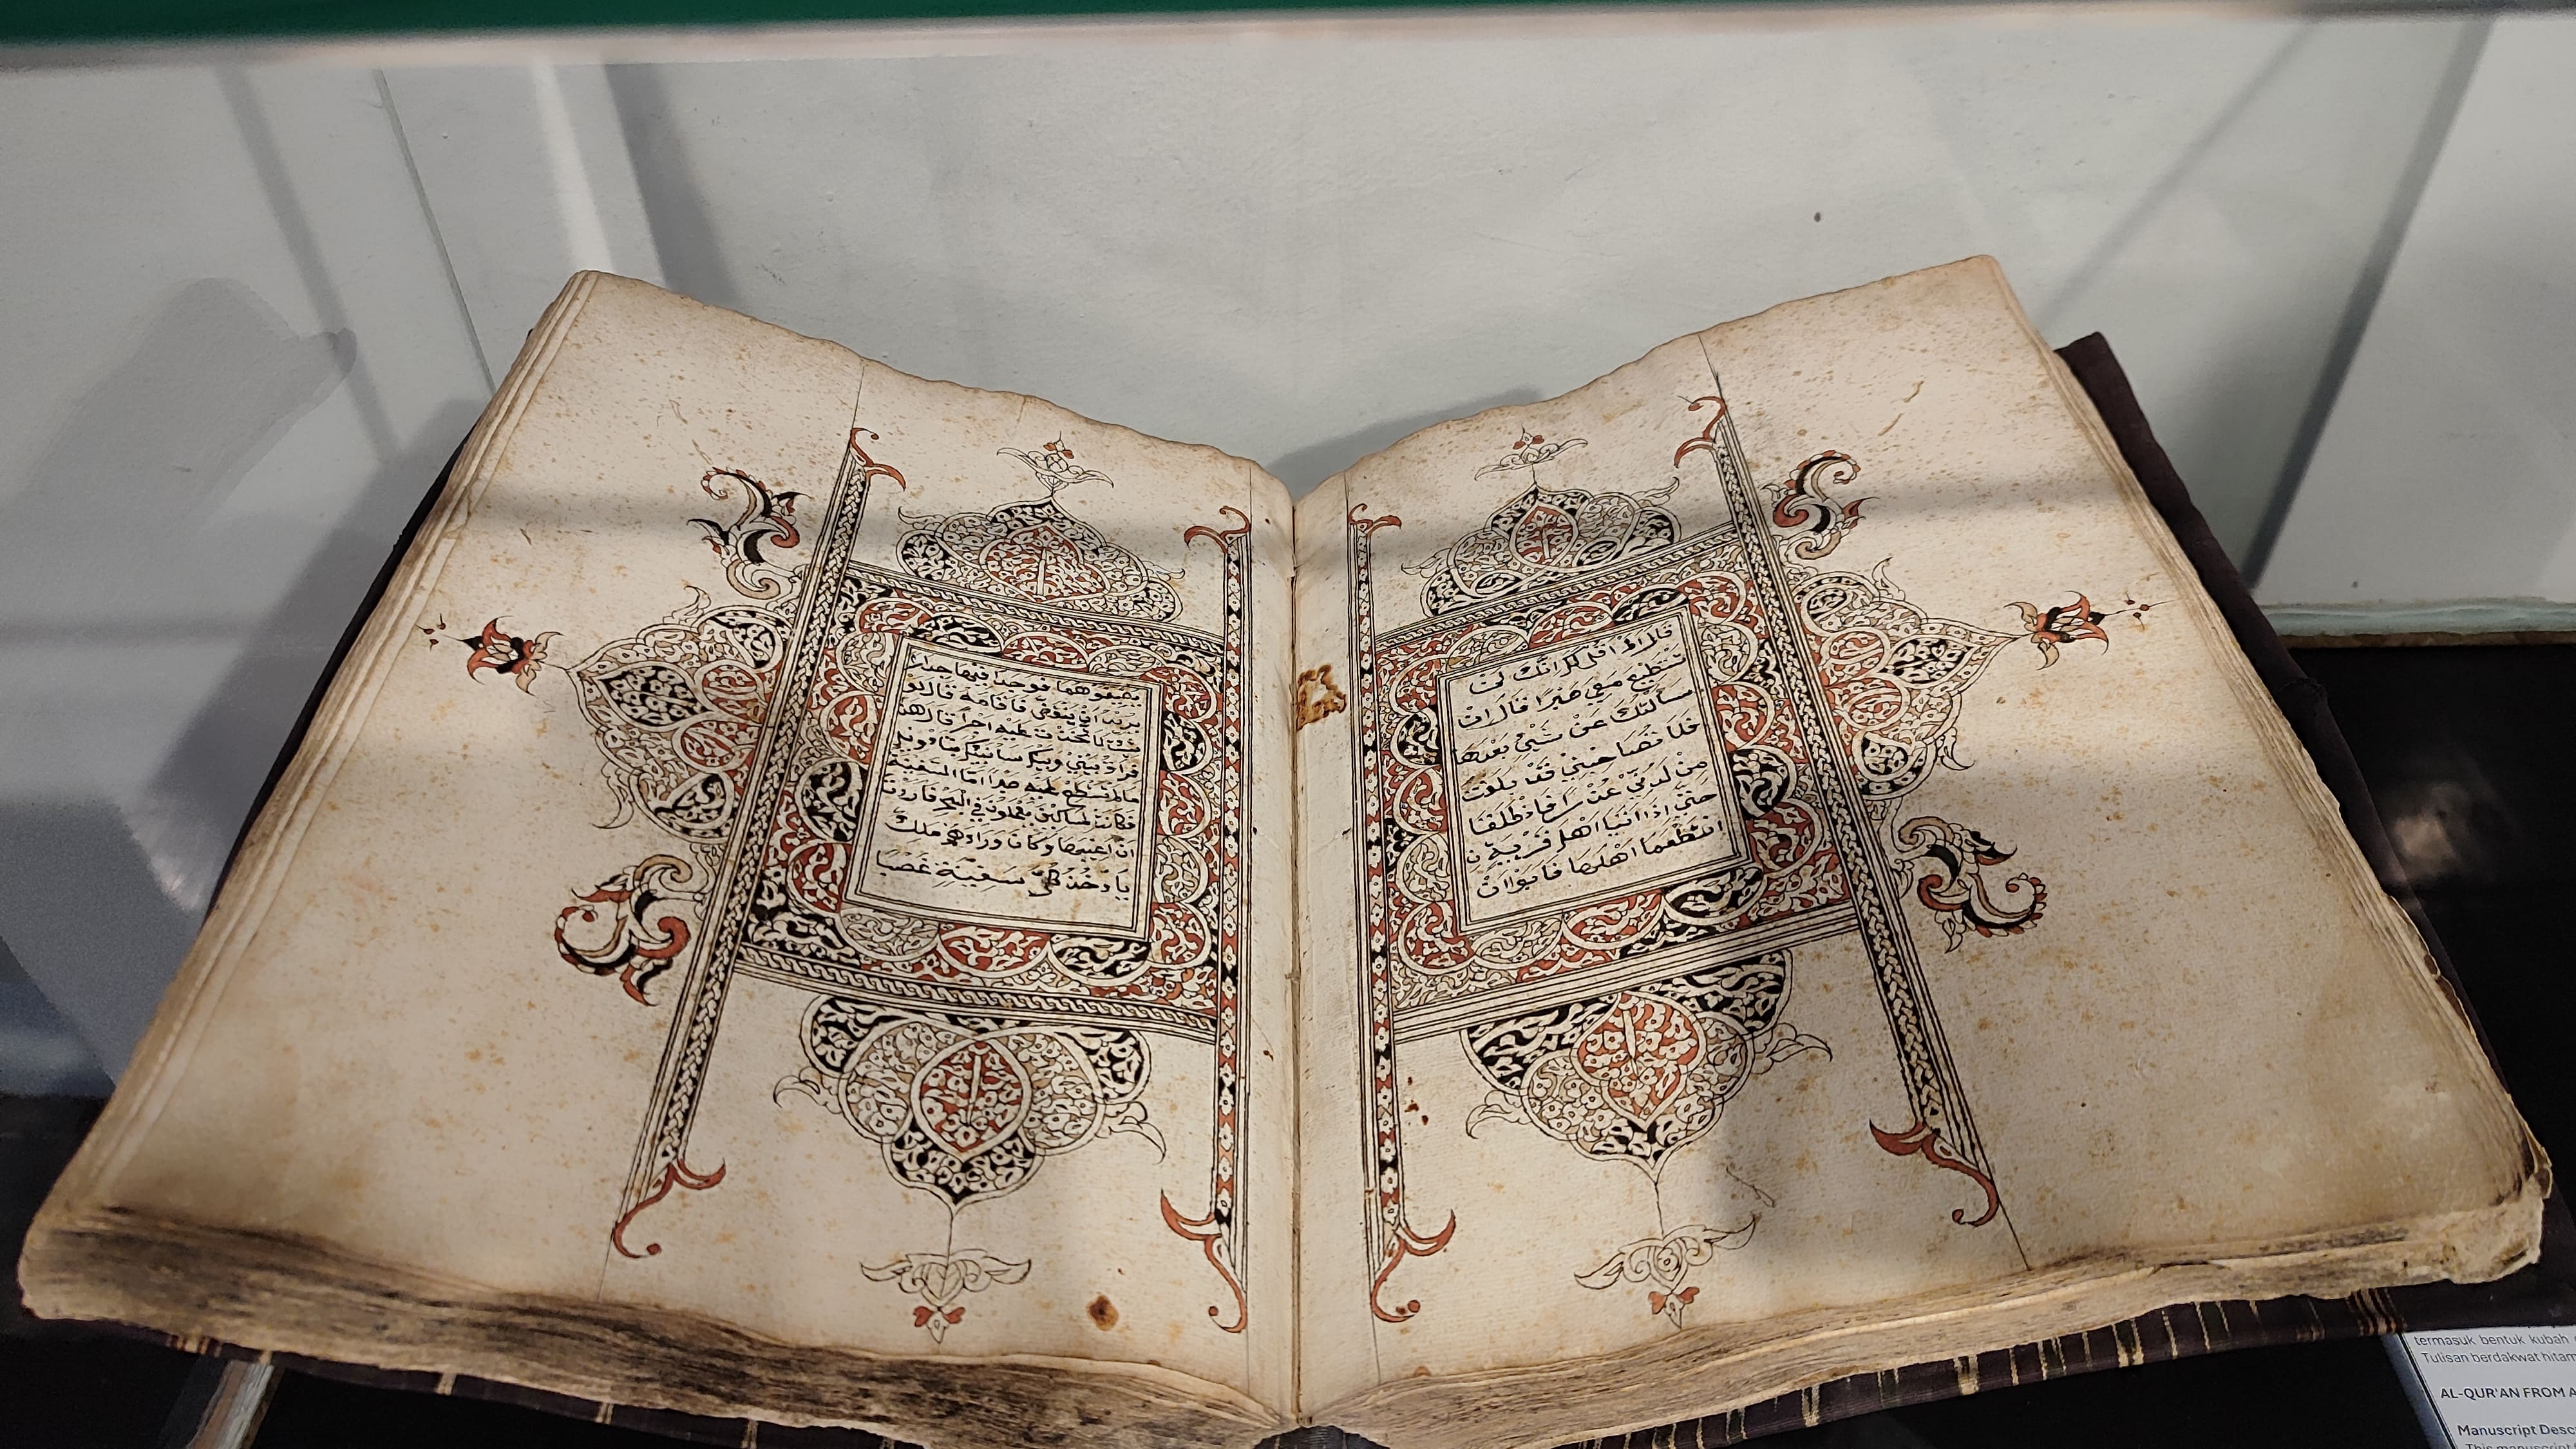 قَالَ الَمْ اقُلْ لَكَ انَّكَ لَنْ
تَسْتَطِيْعَ مَعِيَ صَبْرًا قَالَ اِنْ
سَاَلْتُكَ عَنْ شَيْئٍ بَعْدَهَا
فَلَا تُصَاحِبْنِيْ قَدْ بَلَغْتَ
مِنْ لَدُنِّيْ عُذْرًا فَانْطَلَقَا
حَتّٰى اِذَا اَتَيَا اَهْلَ قَرْيَةٍ نِ
اسْتَطْعَمَا اَهْلَهَا فَابَوْا اَنْ
يضيفوهما فوجدا فيها جدارا
يريد ان ينقض فاقامه قال لو
شئت لاتخذت عليه اجرا قال هذا
فراق بيني وبينك سانبئك بتاويل
مالم تستطع عليه صبرا اما السفينة
فكانت لمساكين يعملون في البحر فاردت
ان اعيبها وكان وراءهم ملك
ياخذ كل سفينة غصبا
termasuk bentuk kubah
Tulisan berdakwat hitam
AL-QUR'AN FROM
Manuscript
This